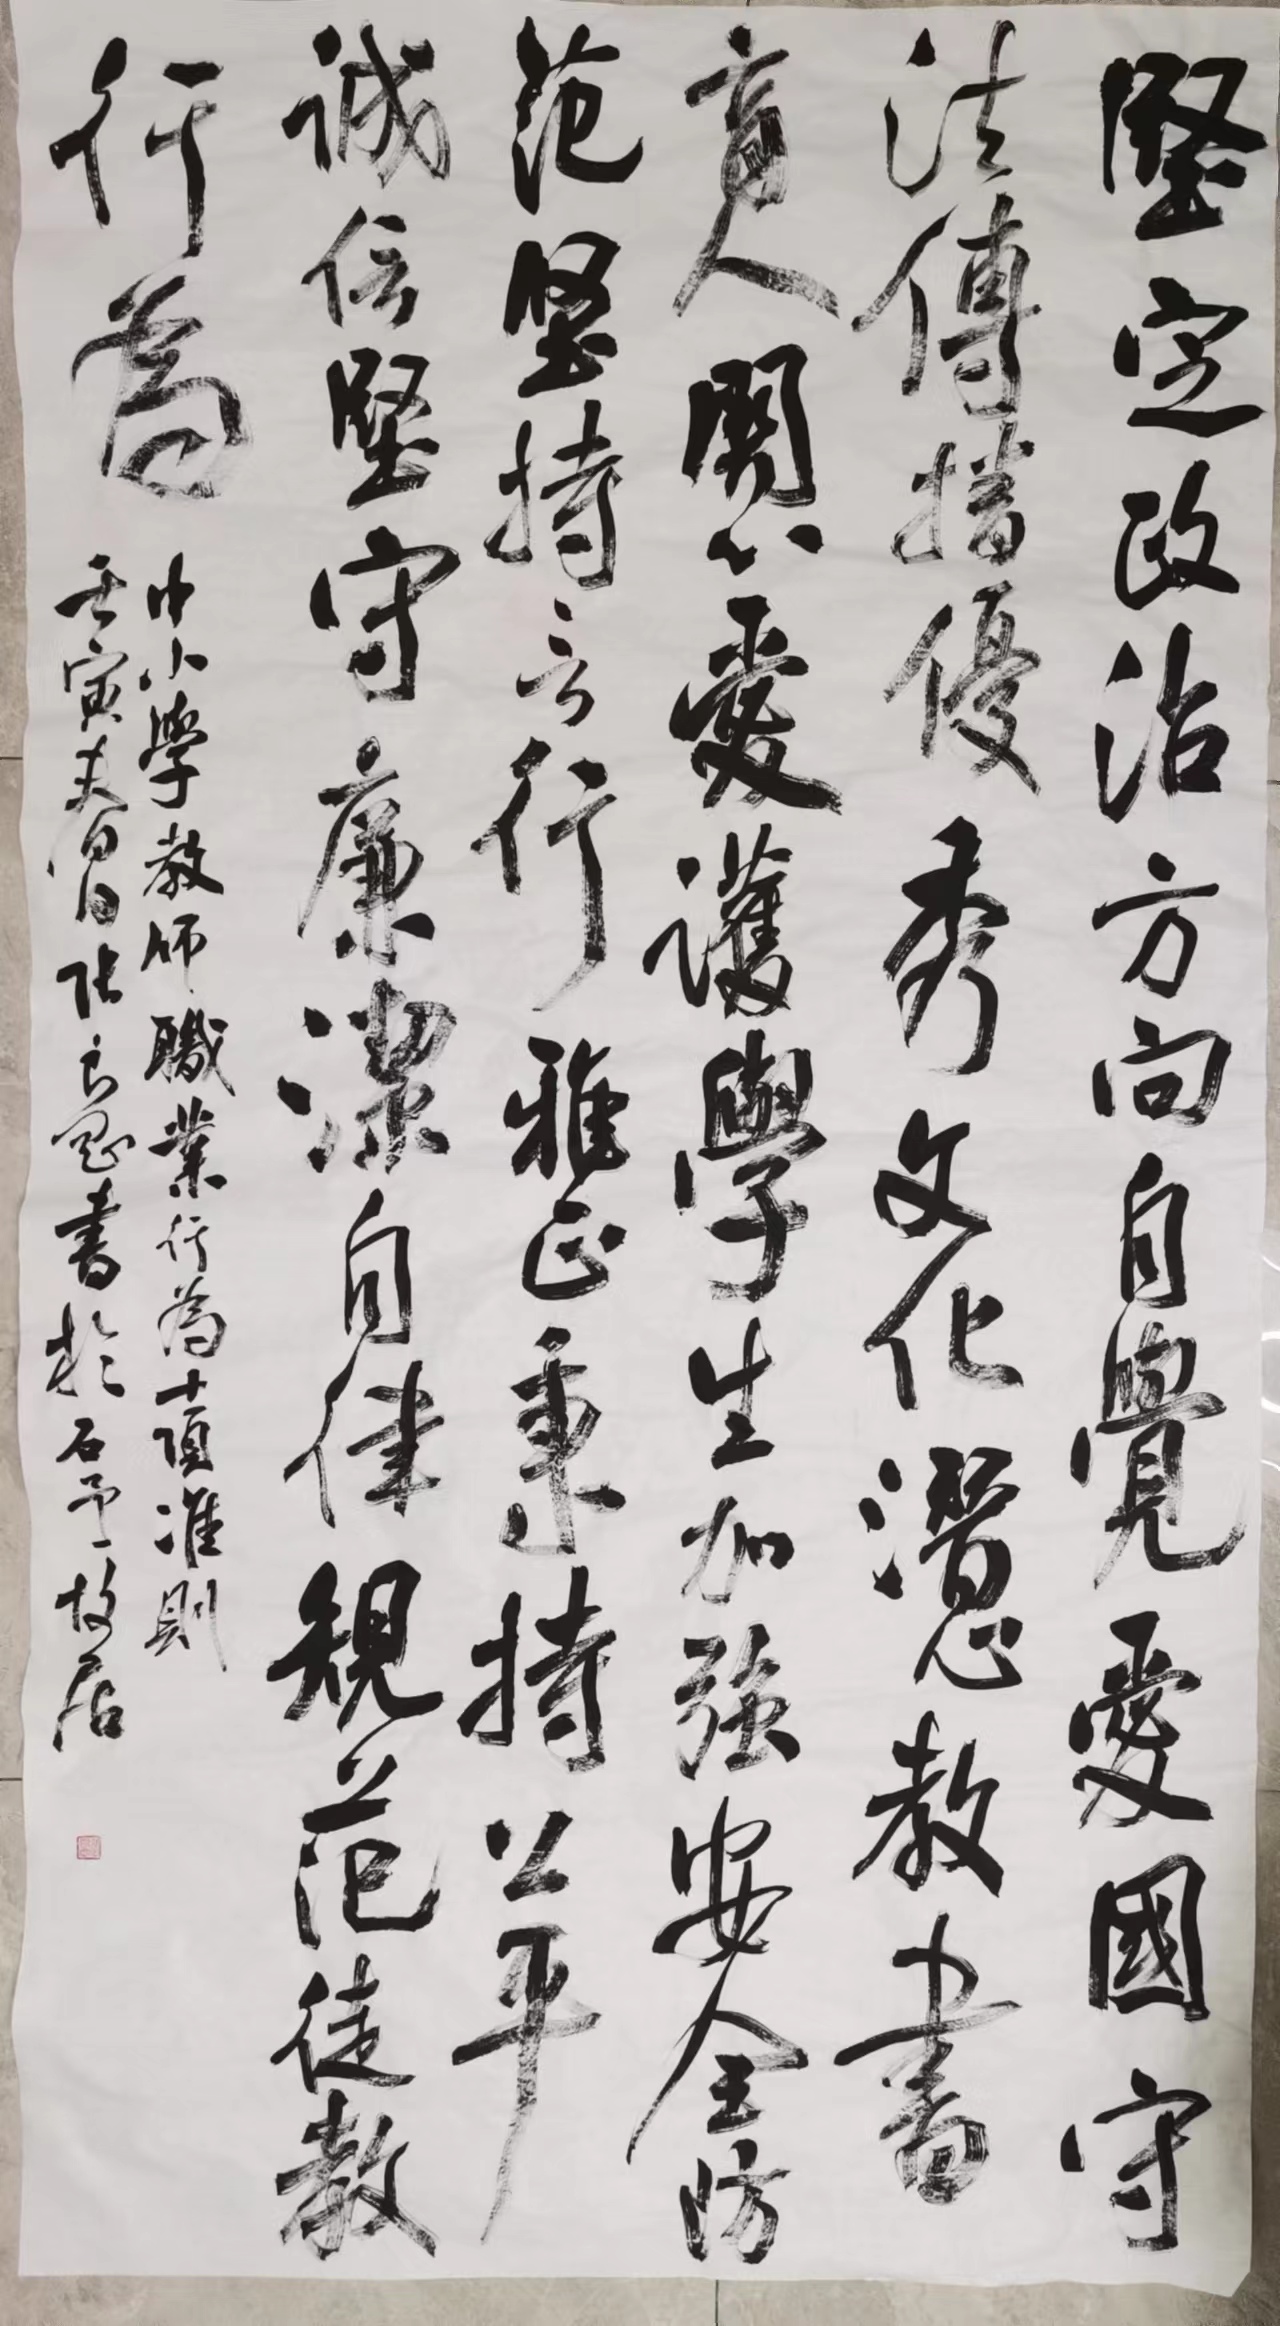 堅定政治方向自覺愛國守
法傳播優秀文化潛心教書
育人關心愛護學生加強安全防
范堅持言行雅正秉持公平
誠信堅守廉潔自律規范從教
行為
中小學教師職業行為十項准則
壬寅夏月張書於石予故居